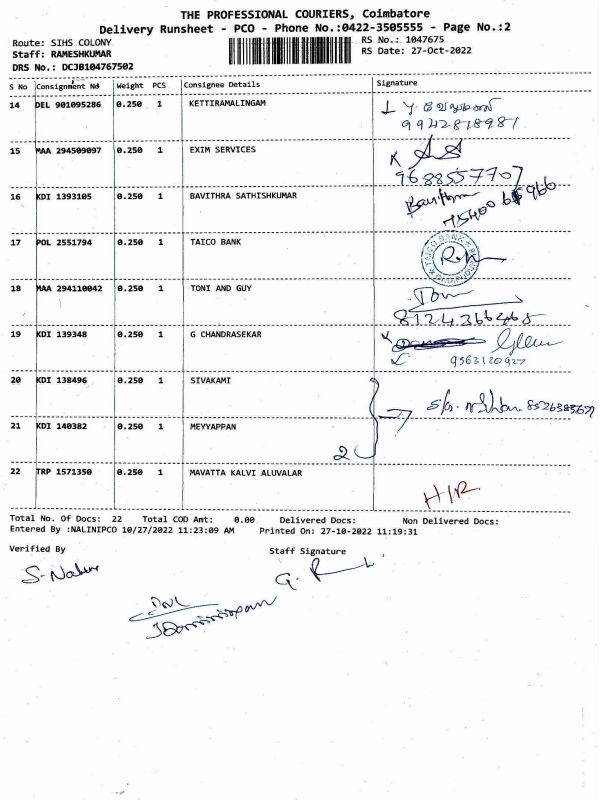 THE PROFESSIONAL COURIERS, Coimbatore
Delivery Runsheet - PCO - Phone No.:0422-3505555 - Page No.:2
Route: SIHS COLONY RS No.: 1047675
Staff: RAMESHKUMAR RS Date: 27-Oct-2022
DRS No.: DCJB104767502
S No Consignment No Weight PCS Consignee Details Signature
14 DEL 901095286 0.250 1 KETTIRAMALINGAM
9942818981
15 MAA 294509097 0.250 1 EXIM SERVICES
9688557707
16 KDI 1393105 0.250 1 BAVITHRA SATHISHKUMAR Bavithra
17 POL 2551794 0.250 1 TAICO BANK TAICO BANK
18 MAA 294110042 0.250 1 TONI AND GUY Tom
8124366468
19 KDI 139348 0.250 1 G CHANDRASEKAR
9563120927
20 KDI 138496 0.250 1 SIVAKAMI
21 KDI 140382 0.250 1 MEYYAPPAN 2
22 TRP 1571350 0.250 1 MAVATTA KALVI ALUVALAR
H/R
Total No. Of Docs: 22 Total COD Amt: 0.00 Delivered Docs: Non Delivered Docs:
Entered By :NALINIPCO 10/27/2022 11:23:09 AM Printed On: 27-10-2022 11:19:31
Verified By Staff Signature